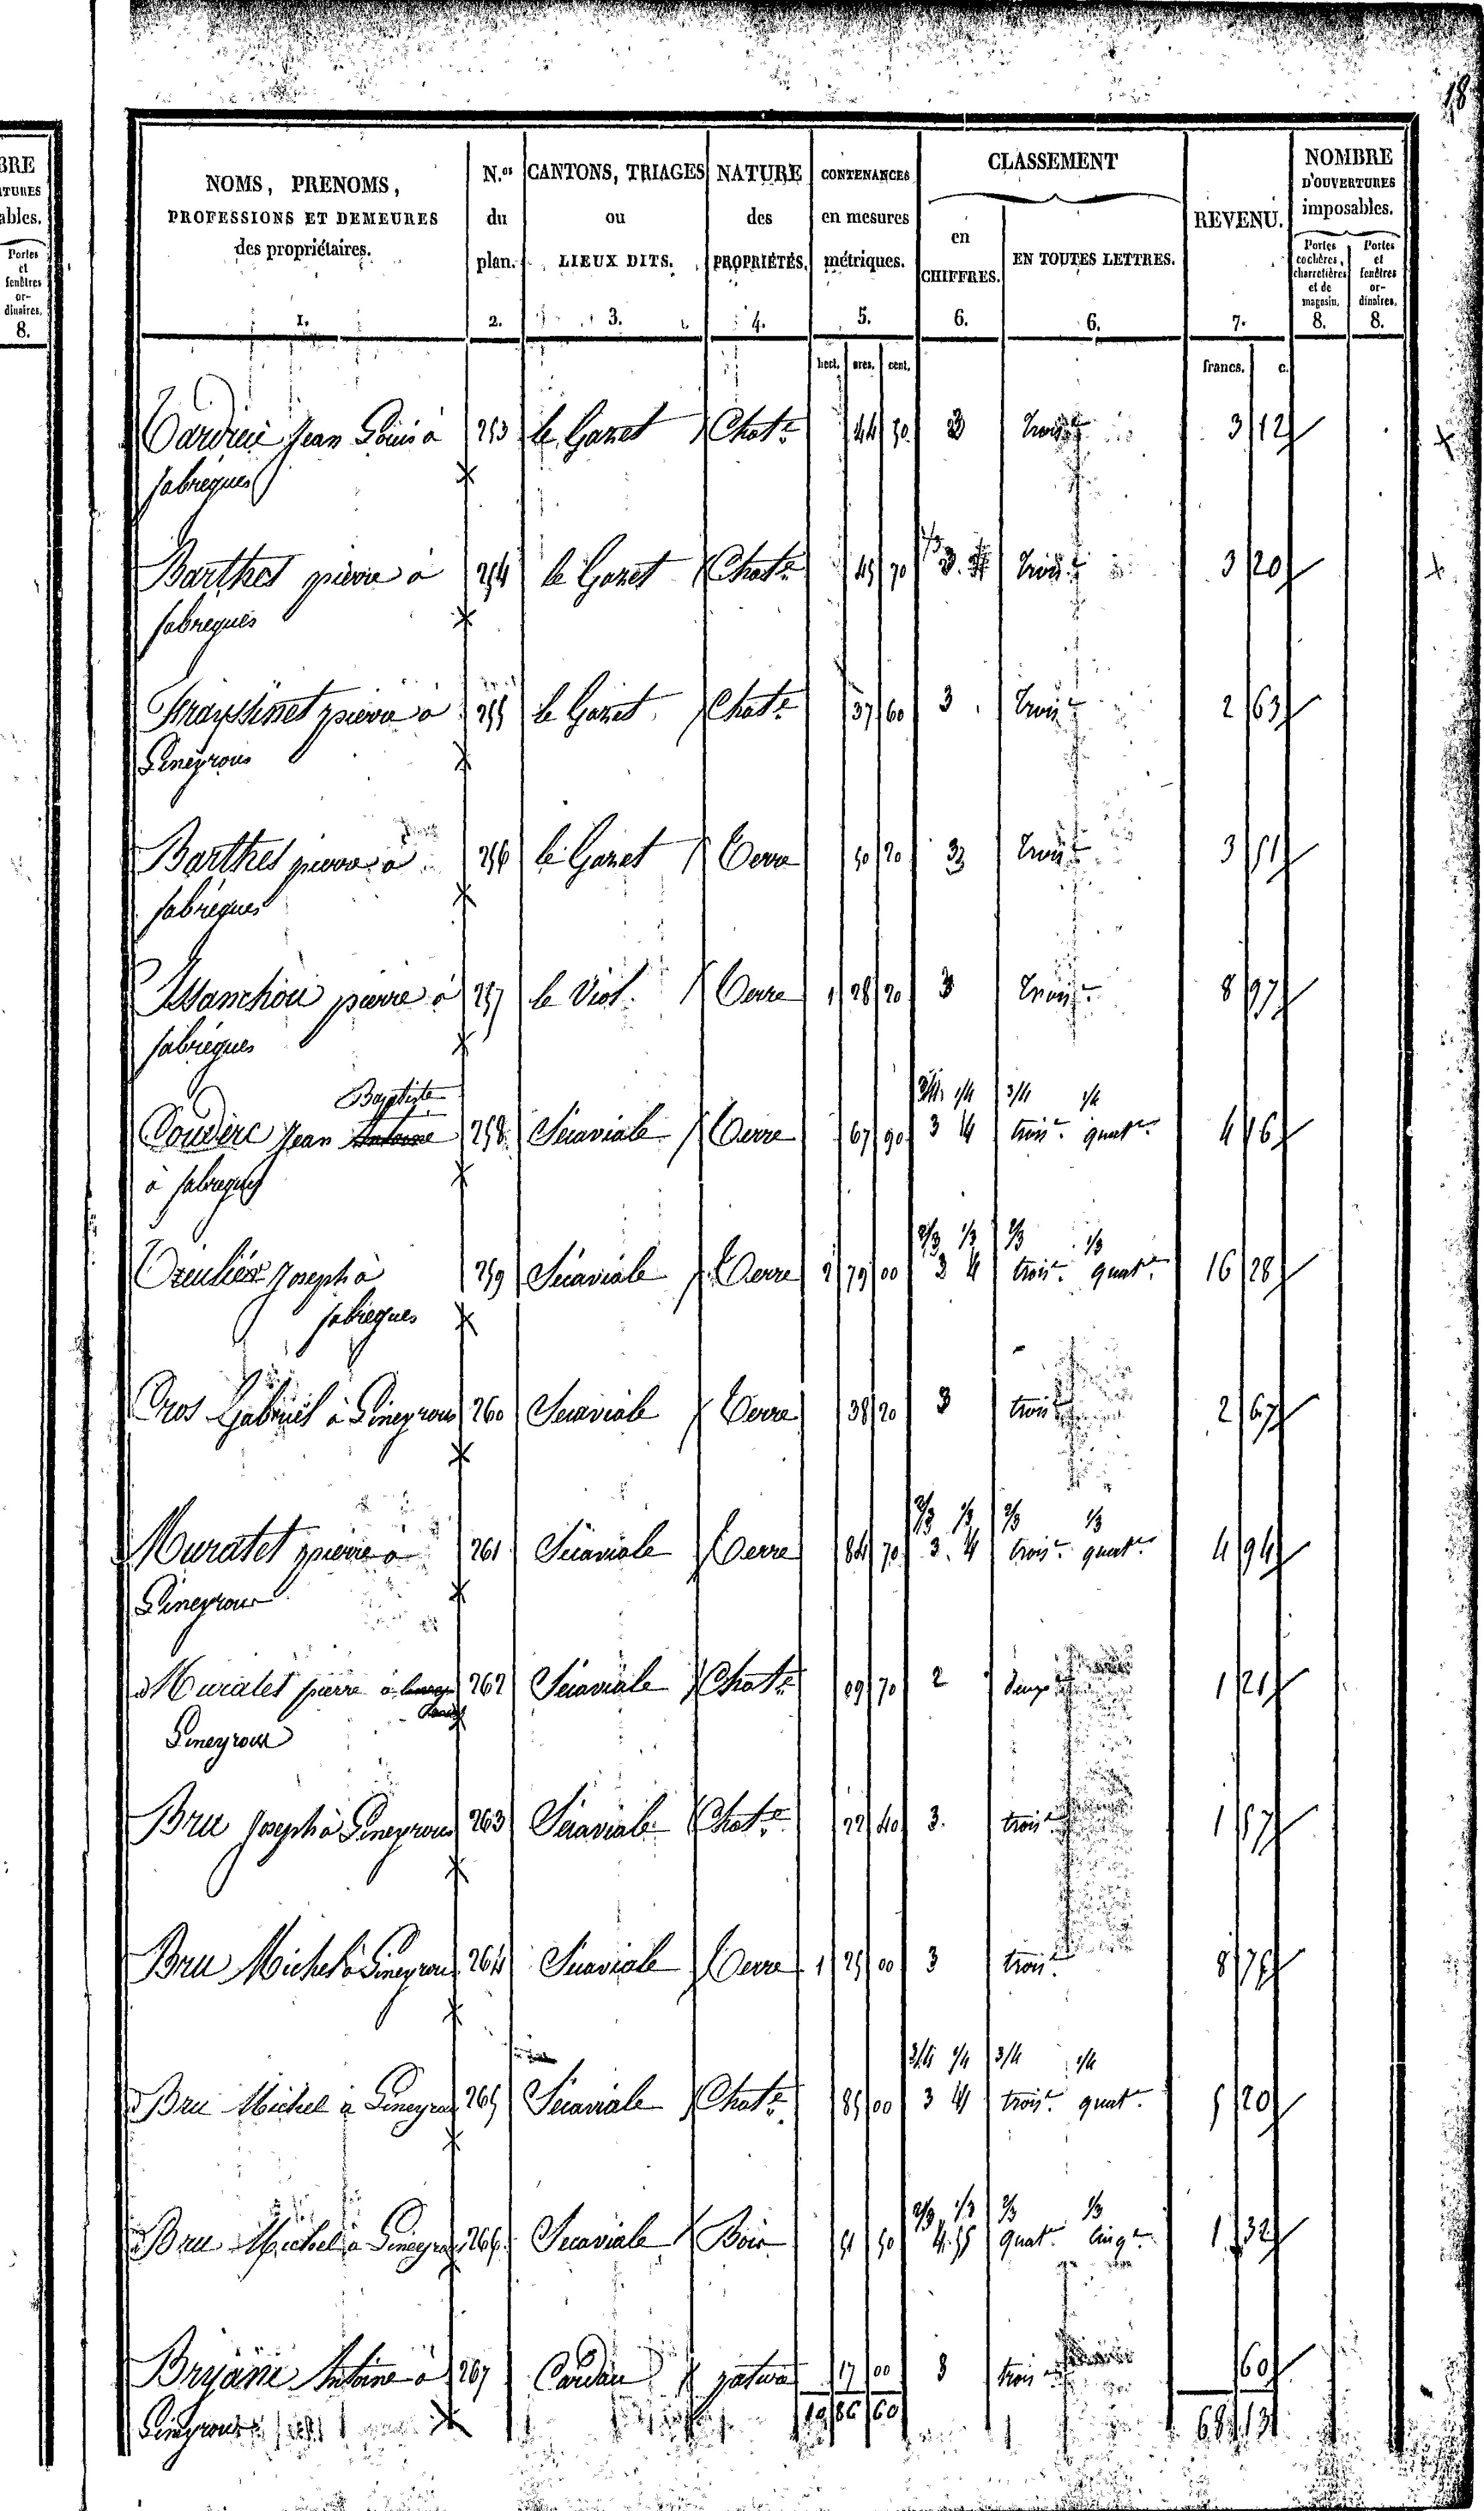 18
BRE
ATURES
ables.
Portes
et
fenêtres
or-
dinaires.
8.
NOMS, PRENOMS,
PROFESSIONS ET DEMEURES
des propriétaires.
1.
N.os
du
plan.
2.
CANTONS, TRIAGES
ou
LIEUX DITS.
3.
NATURE
des
PROPRIÉTÉS.
4.
CONTENANCES
en mesures
métriques.
5.
CLASSEMENT
en
CHIFFRES.
6.
EN TOUTES LETTRES.
6.
REVENU.
7.
NOMBRE
D'OUVERTURES
imposables.
Portes
cochères,
charretières
et de
magasin.
8.
Portes
et
fenêtres
or-
dinaires.
8.
hect. ares. cent. francs. c.
Tardieu Jean Louis à 253 le Gazet Chat.re 44 50 3 trois.e 3 12
fabregues
Barthes pierre à 254 le Gazet Chat.re 45 70 3 trois.e 3 20
fabregues
Frayssinet pierre à 255 le Gazet Chat.re 37 60 3 trois.e 2 63
Gineyrous
Barthes pierre à 256 le Gazet Terre 50 20 3 trois.e 3 51
fabregues
Issanchou pierre à 257 le Viol Terre 1 28 20 3 trois.e 8 97
fabregues
Baptiste 3/4 1/4 3/4 1/4
Couderc Jean Antoine 258 Séraviale Terre 67 90 3 4 trois.e quat.e 4 16
à fabregues
2/3 1/3 2/3 1/3
Joseph à 259 Séraviale Terre 2 79 00 3 4 trois.e quat.e 16 28
fabregues
Cros Gabriel à Gineyrous 260 Séraviale Terre 38 20 3 trois.e 2 67
2/3 1/3 2/3 1/3
Muratet pierre à 261 Séraviale Terre 84 70 3 4 trois.e quat.e 4 94
Gineyrous
Muratet pierre à 262 Séraviale Chat.re 09 70 2 deux.e 1 21
Gineyrous
Bru Joseph à Gineyrous 263 Séraviale Chat.re 22 40 3. trois.e 1 57
Bru Michel à Gineyrous 264 Séraviale Terre 1 25 00 3 trois.e 8 75
3/4 1/4 3/4 1/4
Bru Michel à Gineyrous 265 Séraviale Chat.re 85 00 3 4 trois.e quat.e 5 20
2/3 1/3 2/3 1/3
Bru Michel à Gineyrous 266 Séraviale Bois 51 50 4. 5 quat.e cinq.e 1 32
Antoine à 267 pature 17 00 3 trois.e 60
Gineyrous
10 86 60 68 13